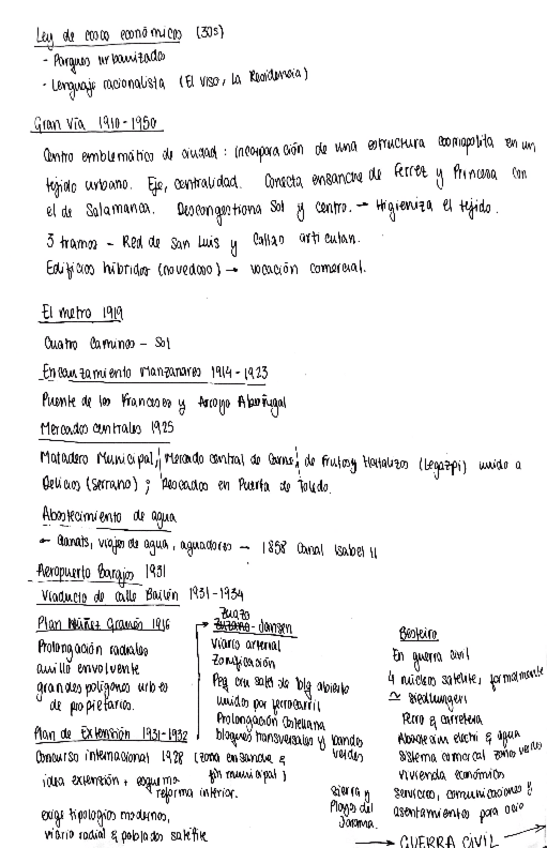 Ley de casas económicas (30s)
- Parques urbanizados
- Lenguaje racionalista (El viso, La Residencia)
Gran Vía 1910-1950
Centro emblemático de ciudad: incorporación de una estructura cosmopolita en un
tejido urbano. Eje, centralidad. Conecta ensanche de Ferrez y Princesa con
el de Salamanca. Descongestiona Sol y centro. → Higieniza el tejido.
3 tramos - Red de San Luis y Callao articulan.
Edificios híbridos (novedoso) → vocación comercial.
El metro 1919
Cuatro Caminos - Sol
Encauzamiento Manzanares 1914-1923
Puente de los Franceses y Arroyo Abroñigal
Mercados centrales 1925
Matadero Municipal, Mercado central de Carne, de Frutos y Hortalizas (Legazpi) unido a
Delicias (Serrano); Pescados en Puerta de Toledo.
Abastecimiento de agua
- Qanats, viajes de agua, aguadores - 1858 Canal Isabel II
Aeropuerto Barajas 1931
Viaducto de calle Bailén 1931-1934
Plan Núñez Granés 1916
Prolongación radiales
anillo envolvente
grandes polígonos urb es
de propietarios.
Plan de Extensión 1931-1932
Concurso internacional 1928 (zona ensanche &
fin municipal)
idea extensión + esquema
reforma interior.
exige tipologías modernas,
viario radial & poblados satélite
Zuazo
- Jansen
Viario arterial
Zonificación
Peq ciu sates de blq abierto
unidos por ferrocarril
Prolongación Castellana
bloques transversales y bandas
verdes
Sierra y
Playas del
Jarama.
Besteiro
En guerra civil
4 núcleos satélite, formalmente
≃ siedlungen
Ferro & carretera
Abastecim electri & agua
Sistema comarcal zonas verdes
Vivienda económica
Servicios, comunicaciones &
asentamientos para ocio
→ GUERRA CIVIL →